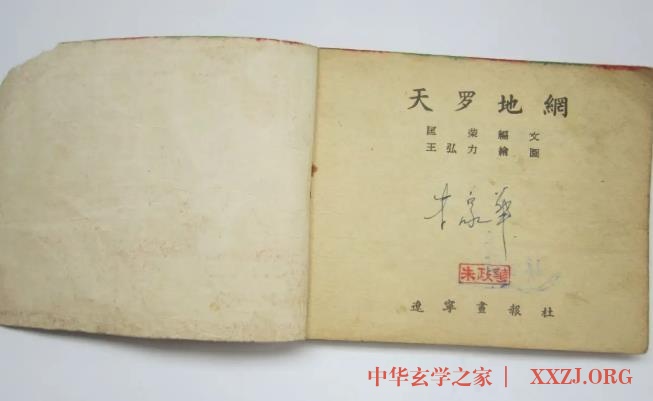 天罗地網
匡荣編文
王弘力繪圖
朱政華
遼寧畫報社
中华玄学之家 | XXZJ.ORG